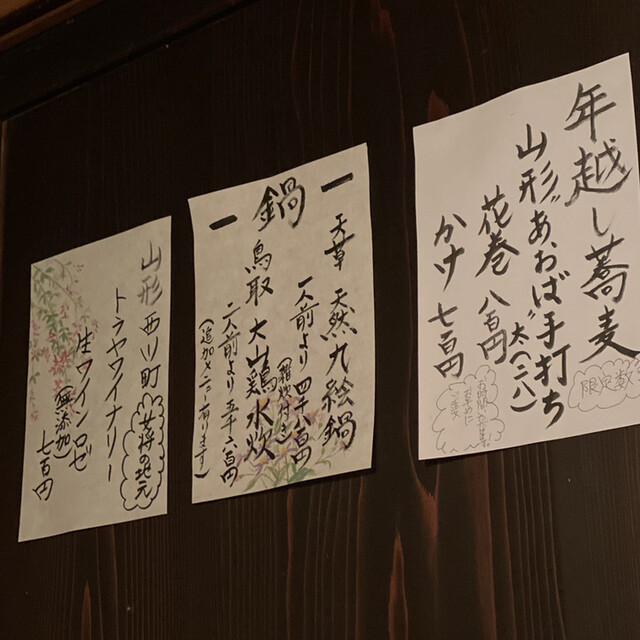 年越し蕎麦
限定数
山形"あおば"手打ち
太(二八)
花巻 八百円
かけ 七百円
鍋
天草 天然九絵鍋
一人前より 四千八百円
(雑炊付き)
鳥取 大山鶏水炊
二人前より 五千六百円
(追加メニュー有ります)
山形 西川町
女将地元
トラヤワイナリー
生ワインロゼ
(無添加)
七百円